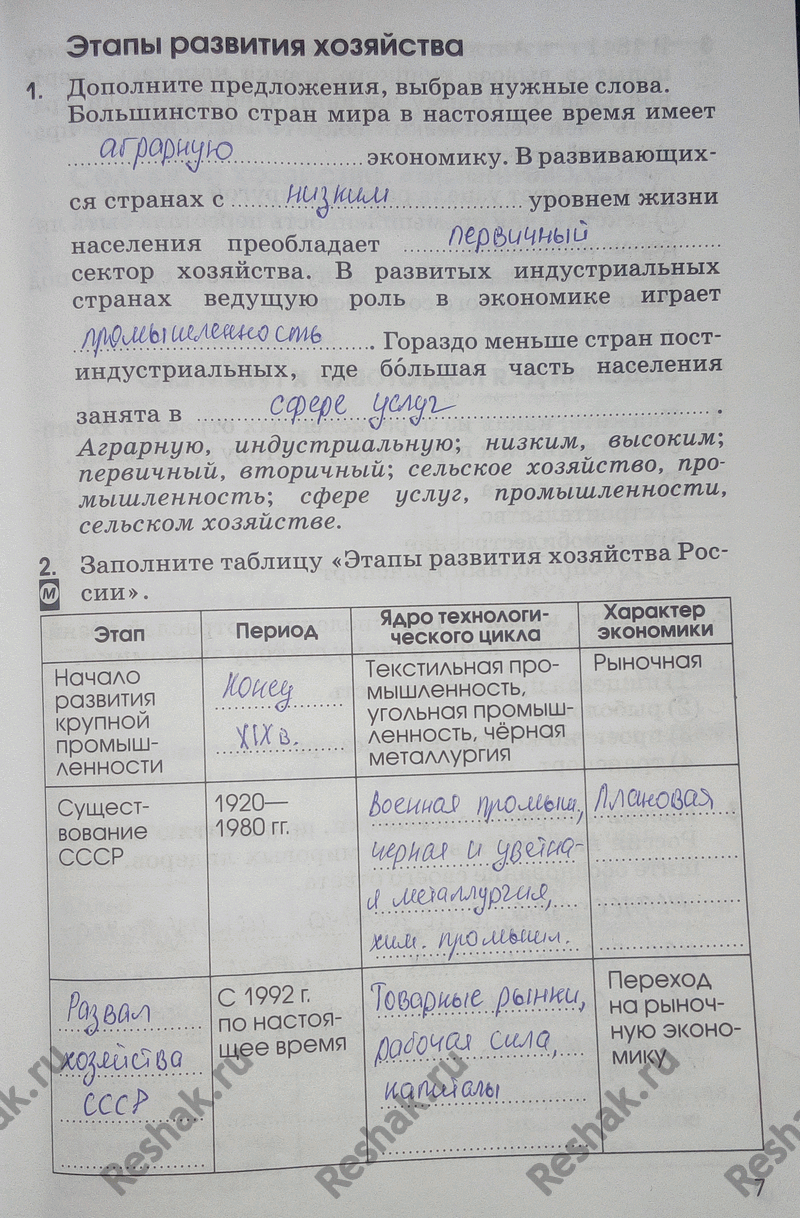 Этапы развития хозяйства
1. Дополните предложения, выбрав нужные слова.
Большинство стран мира в настоящее время имеет
аграрную экономику. В развивающих-
ся странах с низким уровнем жизни
населения преобладает первичный
сектор хозяйства. В развитых индустриальных
странах ведущую роль в экономике играет
промышленность. Гораздо меньше стран пост-
индустриальных, где бо́льшая часть населения
занята в сфере услуг.
Аграрную, индустриальную; низким, высоким;
первичный, вторичный; сельское хозяйство, про-
мышленность; сфере услуг, промышленности,
сельском хозяйстве.
2. Заполните таблицу «Этапы развития хозяйства Рос-
М сии».
Этап
Период
Ядро технологи-
ческого цикла
Характер
экономики
Начало
развития
крупной
промыш-
ленности
Конец
XIX в.
Текстильная про-
мышленность,
угольная промыш-
ленность, чёрная
металлургия
Рыночная
Сущест-
вование
СССР
1920—
1980 гг.
Военная промыш,
черная и цветна-
я металлургия,
хим. промышл.
Плановая
Развал
хозяйства
СССР
С 1992 г.
по настоя-
щее время
Товарные рынки,
рабочая сила,
капиталы
Переход
на рыноч-
ную эконо-
мику
7
Reshak.ru
Reshak.ru
Reshak.ru